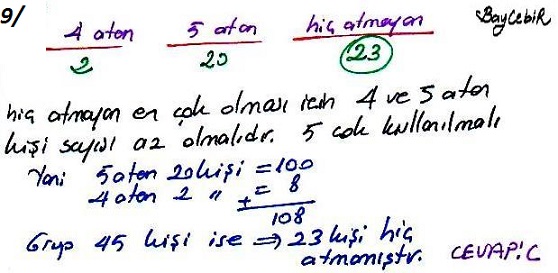 9/ 4 atan 5 atan hiç atmayan BayCebiR
2 20 23
hiç atmayan en çok olması için 4 ve 5 atan
kişi sayısı az olmalıdır. 5 çok kullanılmalı
Yani 5 atan 20 kişi = 100
4 atan 2 " = 8
+
108
Grup 45 kişi ise ⇒ 23 kişi hiç
atmamıştır. CEVAP: C